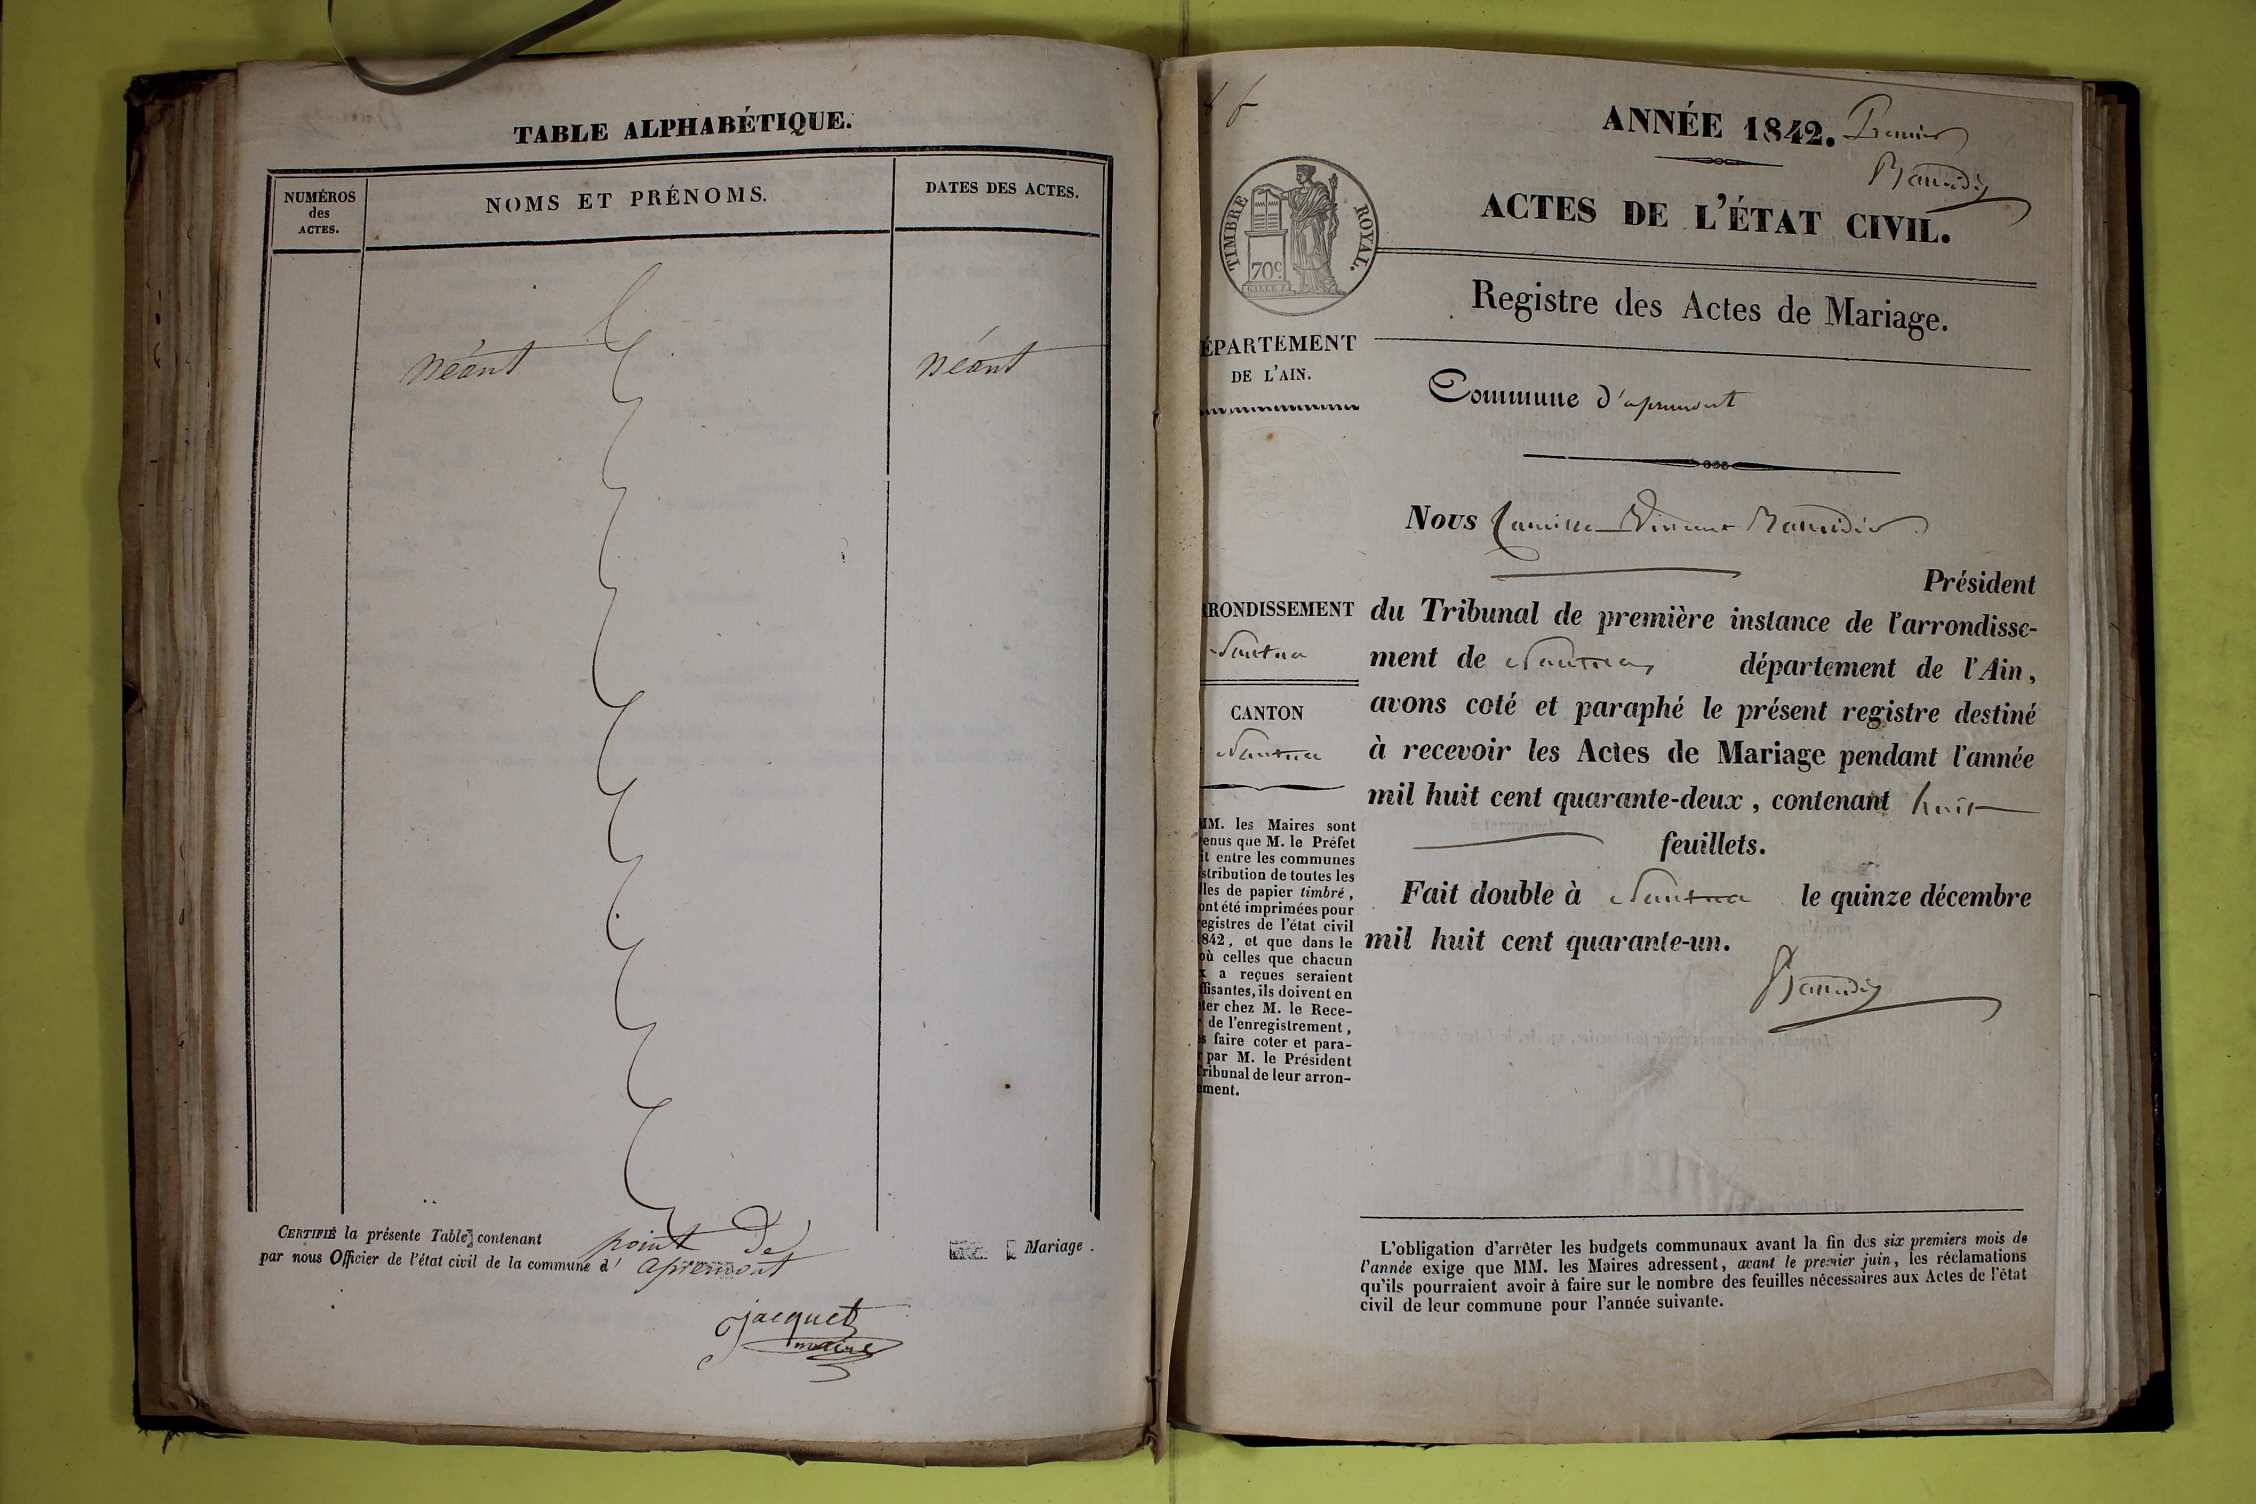 TABLE ALPHABÉTIQUE.
NUMÉROS
des
ACTES.
NOMS ET PRÉNOMS.
DATES DES ACTES.
Néant
Néant
CERTIFIÉ la présente Table contenant point de Mariage.
par nous Officier de l'état civil de la commune d' apremont
jacquet
maire
ANNÉE 1842. Premier
ACTES DE L'ÉTAT CIVIL.
TIMBRE ROYAL.
70c
Registre des Actes de Mariage.
ÉPARTEMENT
DE L'AIN.
Commune d'apremont
Nous Camille Vincent
Président
RONDISSEMENT
Nantua
du Tribunal de première instance de l'arrondisse-
ment de Nantua département de l'Ain,
CANTON
Nantua
avons coté et paraphé le présent registre destiné
à recevoir les Actes de Mariage pendant l'année
mil huit cent quarante-deux, contenant huit
feuillets.
Fait double à Nantua le quinze décembre
mil huit cent quarante-un.
MM. les Maires sont
enus que M. le Préfet
it entre les communes
stribution de toutes les
lles de papier timbré,
ont été imprimées pour
egistres de l'état civil
842, et que dans le
où celles que chacun
x a reçues seraient
ffisantes, ils doivent en
ter chez M. le Rece-
de l'enregistrement,
s faire coter et para-
par M. le Président
ribunal de leur arron-
ment.
L'obligation d'arrêter les budgets communaux avant la fin des six premiers mois de
l'année exige que MM. les Maires adressent, avant le premier juin, les réclamations
qu'ils pourraient avoir à faire sur le nombre des feuilles nécessaires aux Actes de l'état
civil de leur commune pour l'année suivante.